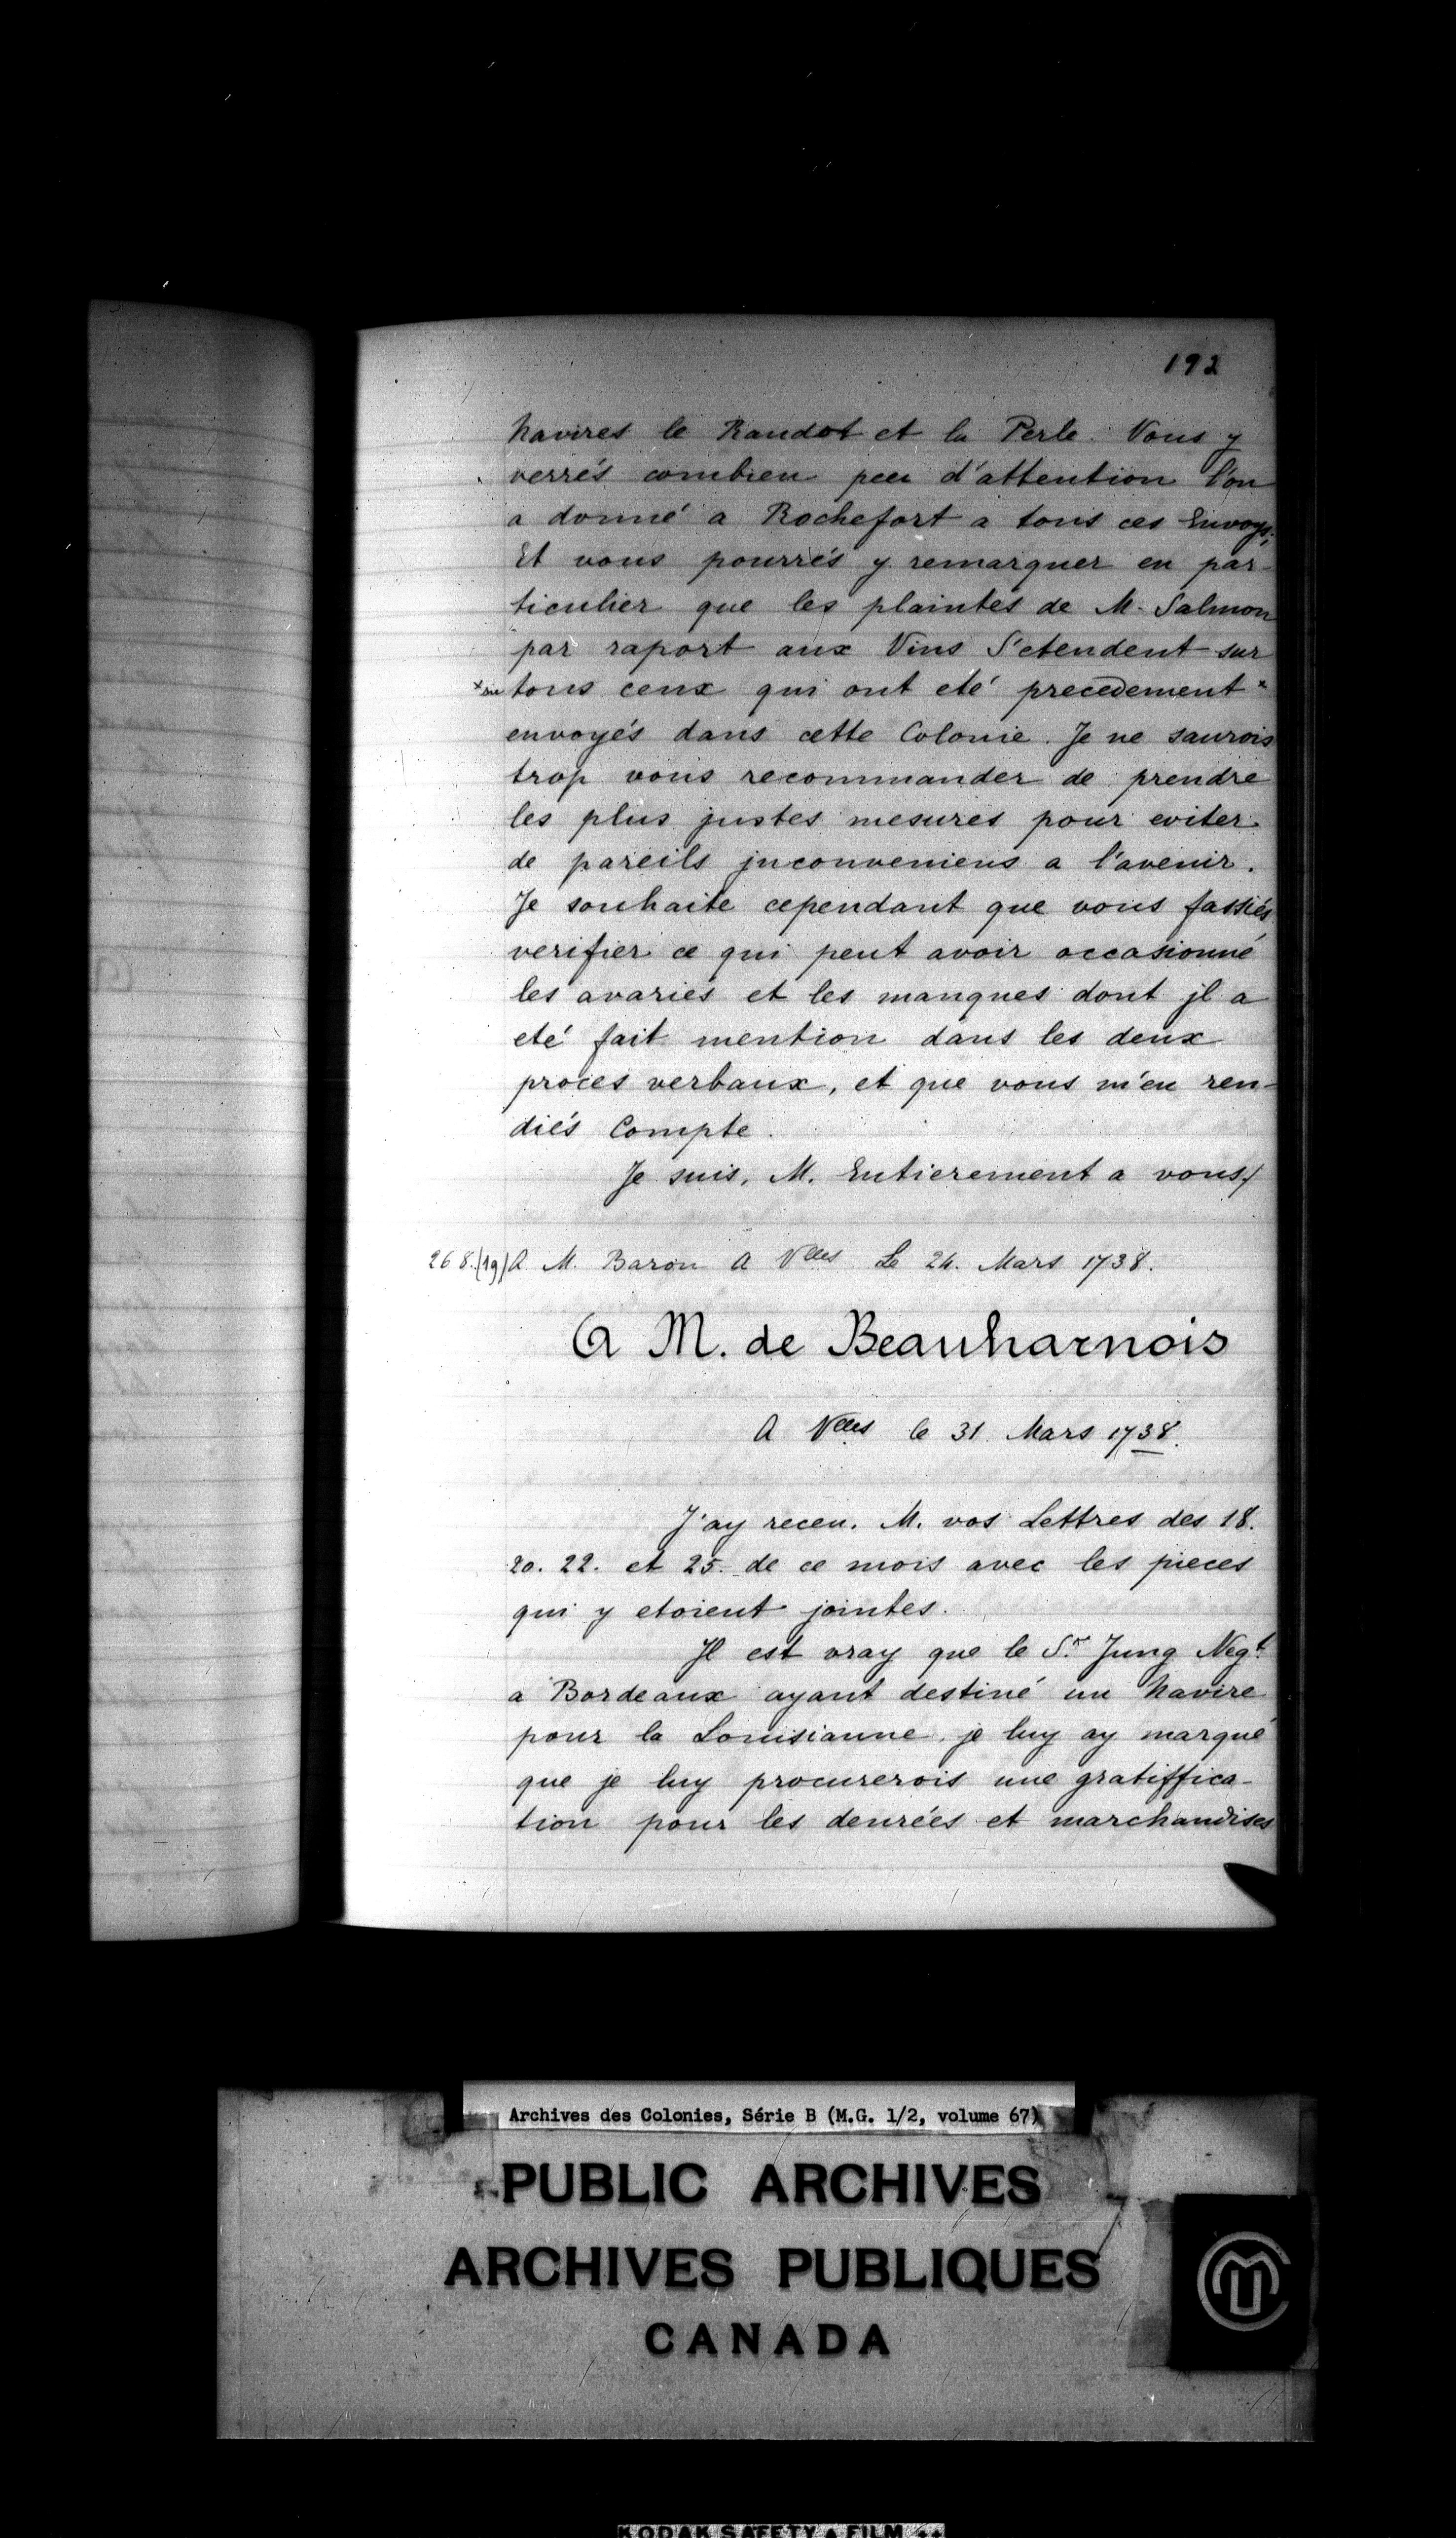 192
Navires le Raudot et la Perle. Vous y
verrés combien peu d'attention l'on
a donné a Rochefort a tous ces Envoys;
Et vous pourrés y remarquer en par-
ticulier que les plaintes de M. Salmon
par raport aux Vins S'etendent sur
tous ceux qui ont eté precedement x
envoyés dans cette Colonie. Je ne saurois
trop vous recommander de prendre
les plus justes mesures pour eviter
de pareils jnconveniens a l'avenir.
Je souhaite cependant que vous fassiés
verifier ce qui peut avoir occasionné
les avaries et les manques dont jl a
eté fait mention dans les deux
proces verbaux, et que vous m'en ren-
diés Compte.
Je suis, M. Entierement a vous./
268.(19) A M. Baron A Vlles Le 24. Mars 1738.
A M. de Beauharnois
A Vlles le 31 Mars 1738.
J'ay receu. M. vos Lettres des 18.
20. 22. et 25. de ce mois avec les pieces
qui y etoient jointes.
Jl est vray que le Sr. Jung Negt.
a Bordeaux ayant destiné un Navire
pour la Louisianne, je luy ay marqué
que je luy procurerois une gratiffica-
tion pour les denrées et marchandises
Archives des Colonies, Série B (M.G. 1/2, volume 67)
PUBLIC ARCHIVES
ARCHIVES PUBLIQUES
CANADA
KODAK SAFETY FILM